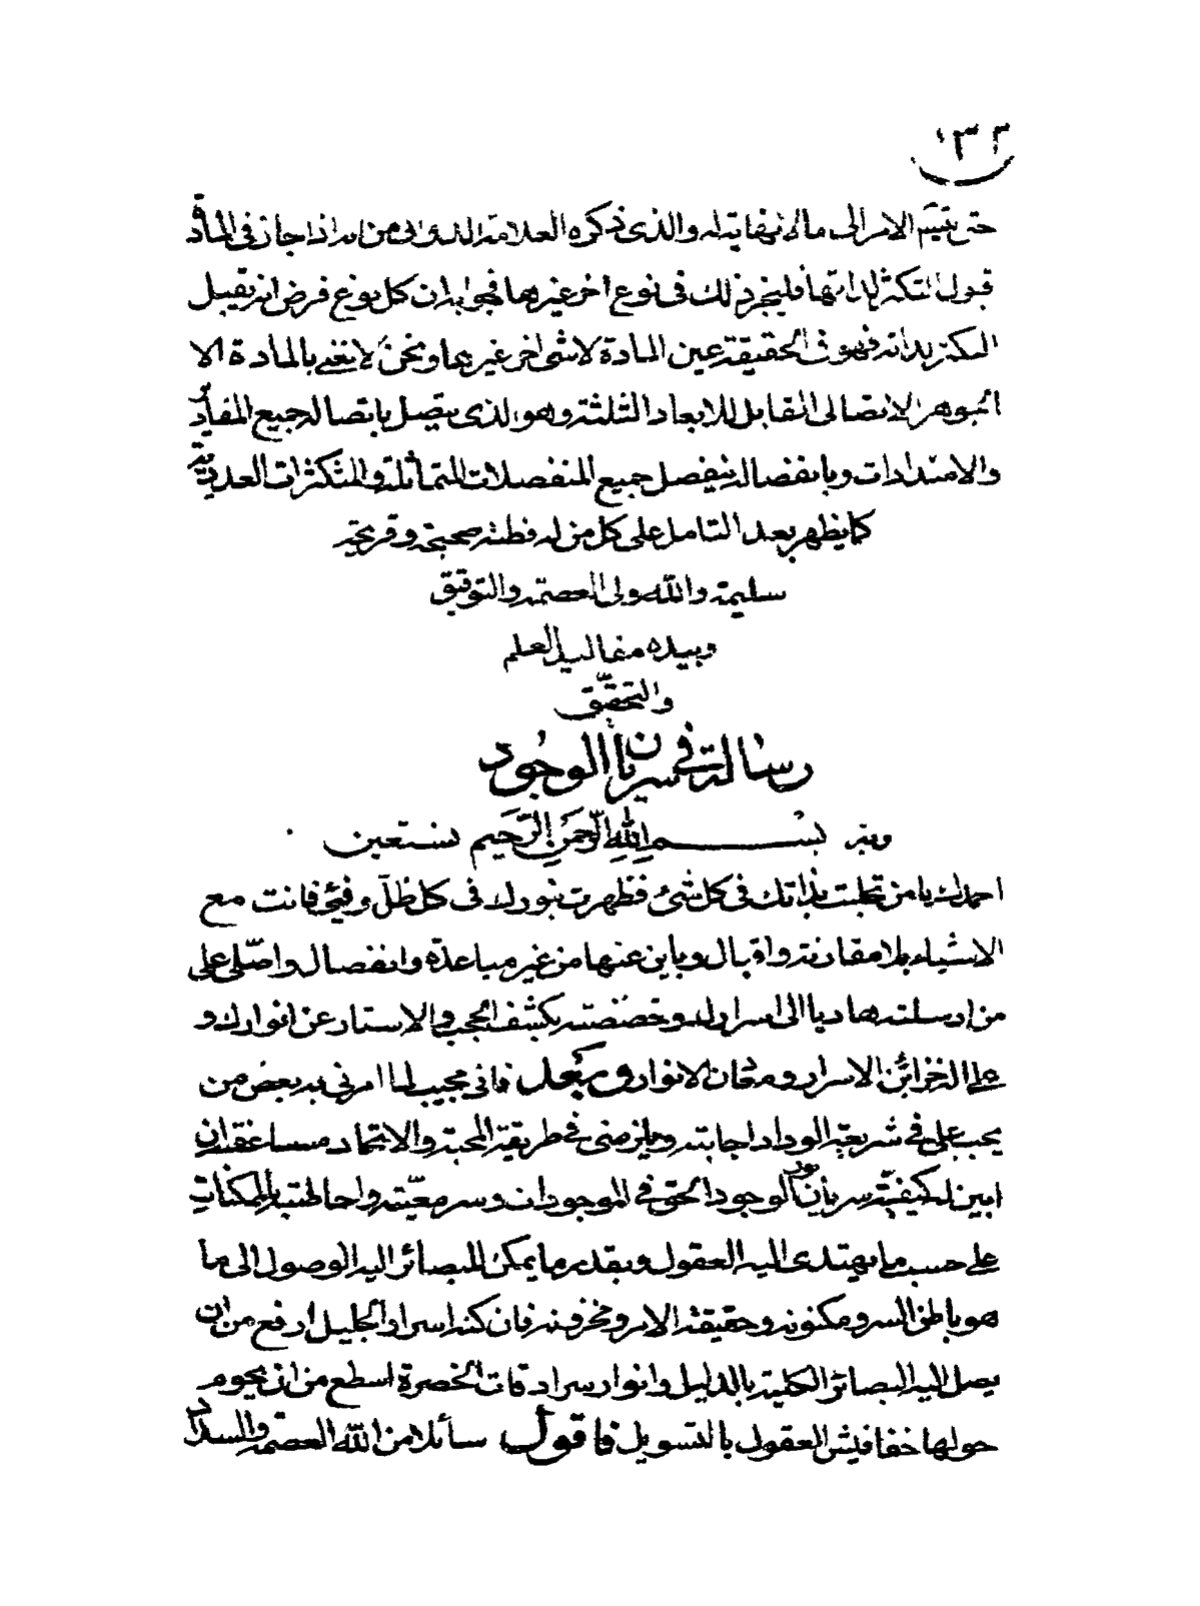 ١٣٢
حتى يتيم الامر الى ما لا نهاية له والذى ذكره العلامة الدوانى من انه اذا جاز فى المادة
قبول التكثر لذاتها فليجز ذلك فى نوع اخر غيرها فجوابه ان كل نوع فرض انه يقبل
التكثر بذاته فهو فى الحقيقة عين المادة لا شى اخر غيرها ونحن لا نعنى بالمادة الا
الجوهر الاتصالى القابل للابعاد الثلثة وهو الذى يتصل باتصاله جميع المقادير
والامتدادات وبانفصاله ينفصل جميع المنفصلات المتماثلة والمتكثرات العددية
كما يظهر بعد التامل على كل من له فطنة صحيحة وقريحة
سليمة والله ولى العصمة والتوفيق
وبيده مقاليد العلم
والتحقيق
رسالة فى سريان الوجود
وبه بسم الله الرحمن الرحيم نستعين
احمدك يا من تجليت بذاتك فى كل شئ فظهرت بنورك فى كل ظل وفيئ فانت مع
الاشياء بلا مقارنة واقبال وباين عنها من غير مباعدة وانفصال واصلى على
من ارسلته هاديا الى اسرارك وخصصته بكشف الحجب والاستار عن انوارك و
على اله خزائن الاسرار ومعادن الانوار وبعد فانى مجيب لما امرنى به بعض من
يجب على فى شريعة الوداد اجابته ويلزمنى فى طريقة المحبة والاتحاد مساعفته ان
ابين له كيفية سريان نور الوجود الحق فى الموجودات وسر معيته واحاطته بالممكنات
على حسب ما يهتدى اليه العقول وبقدر ما يمكن للبصائر اليه الوصول الى ما
هو باطن السر ومكنونه وحقيقة الامر ومخزونه فان كنه اسرار الجليل ارفع من ان
يصل اليه البصائر الكليلة بالدليل وانوار سرادقات الحضرة اسطع من ان يحوم
حولها خفافيش العقول بالتسويل فاقول سائلا من الله العصمة والسداد